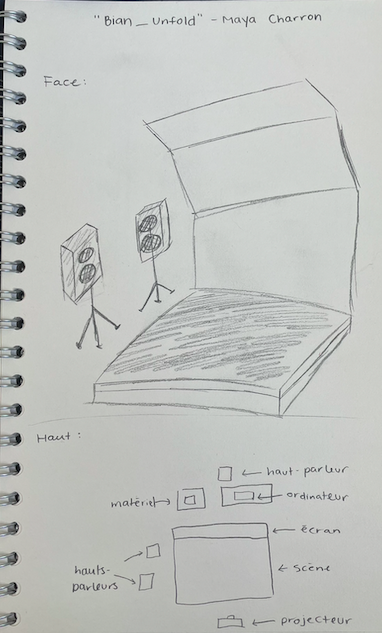 "Bian_Unfold" - Maya Charron
Face:
Haut:
haut-parleur
matériel
ordinateur
écran
hauts-
parleurs
scène
projecteur